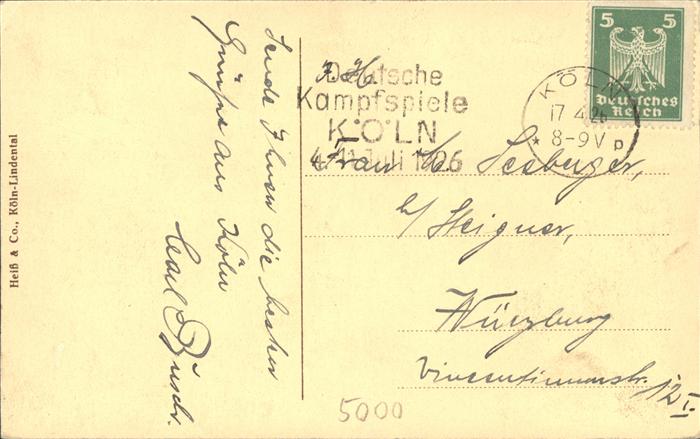 Sende Ihnen die besten
Grüße aus Köln
Carl Büscher.
Heiß & Co., Köln-Lindental
5 5
Deutsches
Reich
KÖLN
17.4.26
* 8-9V p
Deutsche
Kampfspiele
KÖLN
4.-11. Juli 1926
Frau Seeberger,
b/ Steigner,
Würzburg
12 I.
5000